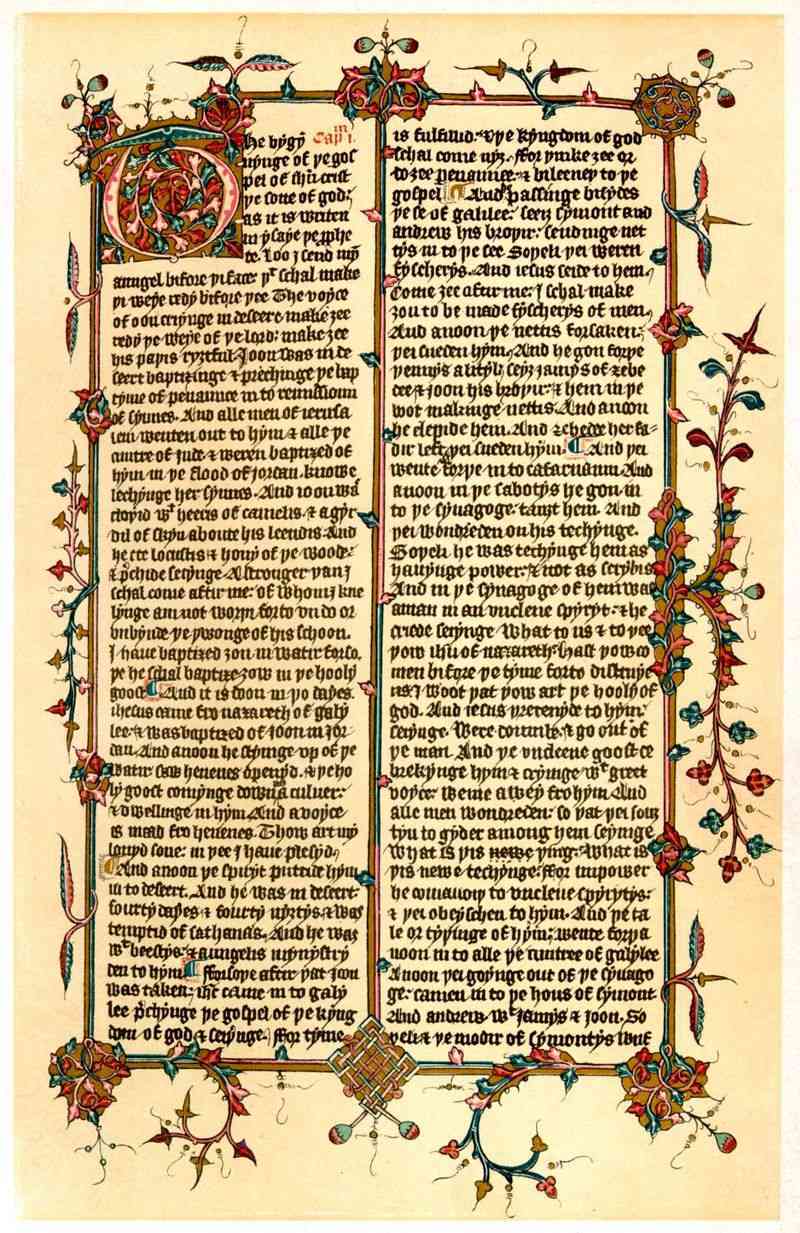 The bygȳ
nynge of þe gos
pel of ihū crist
þe sone of god:
as it is writen
in ysaye þe ꝓphe
te. Loo I send my
Cap̄ in I.
aungel bifore þi face: þͭ schal make
þi weye redy bifore þee The voyce
of oon cryinge in desert: make ȝee
redy þe weye of þe lord: make ȝee
his paþis ryȝtful. Joon was in de
seert baptizinge & prechinge þe bap
tyme of penaunce in to remissioun
of synnes. And alle men of ierusa
lem wenten out to hym & alle þe
cuntre of Jude: & weren baptized of
hym in þe flood of Jordan. knowe
lechynge her synnes. And ioon was
cloþid wͭ heeris of camelis. & a gyr
dil of skyn aboute his leendis. And
he eet locustis & hony of þe woode:
& p̄chide seiynge A stronger þan I
schal come aftir me: of whom I kne
lynge am not worþi forto vndo or
vnbynde þe þwonge of his schoon.
I haue baptized ȝou in watir forso.
þe he schal baptize ȝow in þe hooly
goost And it is doon in þo dayes.
ihesus came fro naȝareth of galy
lee & was baptized of Joon in Jor
dan. And anoon he styinge vp of þe
watir: saw heuenes openyd. & þe ho
ly goost comynge down as culuer:
& dwellinge in hym. And a voyce
is maad fro heuenes. Thow art my
louyd sone: in þee I haue plesyd.
And anoon þe spiryt puttide hym
in to desert. And he was in desert:
fourty dayes & fourty nyȝtys. & was
temptid of sathanas. And he was
wͭ beestys: & aungelis mynystry
den to hym fforsoþe aftir þat Joon
was taken: ihc̄ came in to galy
lee p̄chynge þe gospel of þe kyng
dom of god & seiynge. ffor tyme
is fulfild: & þe kyngdom of god
schal come nyȝ. ffor þinke ȝee or
do ȝee penaunce. & bileeueþ to þe
gospel And passinge bisydes
þe se of galilee: seeȝ symont and
andrew his broþir: sendinge net
tys in to þe see Soþeli þei weren
fyscherys. And iesus seide to hem.
Come ȝee aftir me: I schal make
ȝou to be made fyscherys of men.
And anoon þe nettis forsaken:
þei sueden hym. And he gon forþe
þennys a lityl: seyȝ Jamys of ȝebe
dee & Joon his broþir: & hem in þe
boot makinge nettis. And anoon
he clepide hem. And ȝebedee her fa-
dir left: þei sueden hym. And þei
wente forþe in to cafarnaum And
anoon in þe sabotys he gon in
to þe synagoge: tauȝt hem. And
þei wondreden on his techynge.
Soþeli he was techynge hem as
hauynge power: & not as scrybis
And in þe synagoge of hem was
a man in an vnclene spyryt: & he
criede seiynge What to us & to þee
þow ihū of naȝareth: hast þow co
men bifore þe tyme forto distruye
us. I woot þat þow art þe hooly of
god. And iesus þretenyde to hym
seiynge. Were doumb: & go out of
þe man. And þe vnclene goost ce
brekynge hym & cryinge wͭ greet
voyce: wente a wey fro hym. And
alle men wondreden: so þat þei souȝ
tyn to gyder among hem seyinge
What is þis newe þing: What is
þis newe techynge: ffor in power
he comaundiþ to vnclene spyrytys:
& þei obeyschen to hym. And þe ta
le or tyþinge of hym: wente forþ a
noon in to alle þe cuntree of galylee
Anoon þei goynge out of þe synago
ge: camen in to þe hous of symont
And andrew. wͭ Jamys & Joon. So
þeli & þe modir of symontys wijf